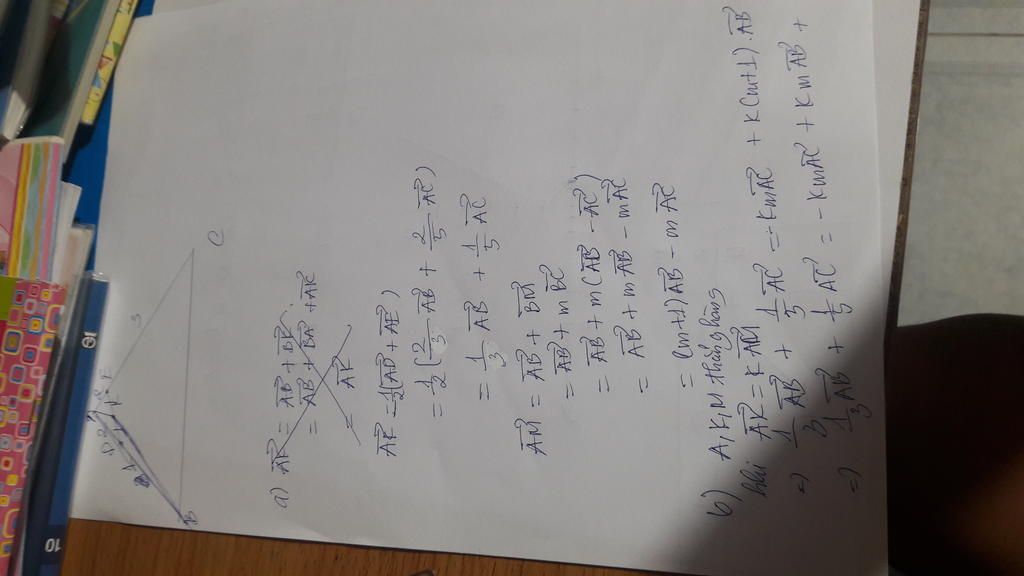 10
B
C
3
a) \overrightarrow{AK} = \overrightarrow{AB} + \overrightarrow{BK}
= \overrightarrow{AB} + \overrightarrow{BA} + \overrightarrow{AK}
= \overrightarrow{AK}
\overrightarrow{AK} = \frac{1}{2}(\overrightarrow{AD} + \overrightarrow{AE})
= \frac{1}{2}(\frac{2}{3}\overrightarrow{AB} + \frac{2}{5}\overrightarrow{AC})
= \frac{1}{3}\overrightarrow{AB} + \frac{1}{5}\overrightarrow{AC}
\overrightarrow{AM} = \overrightarrow{AB} + \overrightarrow{BM}
= \overrightarrow{AB} + m\overrightarrow{BC}
= \overrightarrow{AB} + m(\overrightarrow{AB} - \overrightarrow{AC})
= \overrightarrow{AB} + m\overrightarrow{AB} - m\overrightarrow{AC}
= (m+1)\overrightarrow{AB} - m\overrightarrow{AC}
b) A, K, M thẳng hàng
khi \overrightarrow{AK} = K\overrightarrow{AM}
=) \frac{1}{3}\overrightarrow{AB} + \frac{1}{5}\overrightarrow{AC} = -Km\overrightarrow{AC} + K(m+1).\overrightarrow{AB}
=) \frac{1}{3}\overrightarrow{AB} + \frac{1}{5}\overrightarrow{AC} = -Km\overrightarrow{AC} + Km\overrightarrow{AB} +